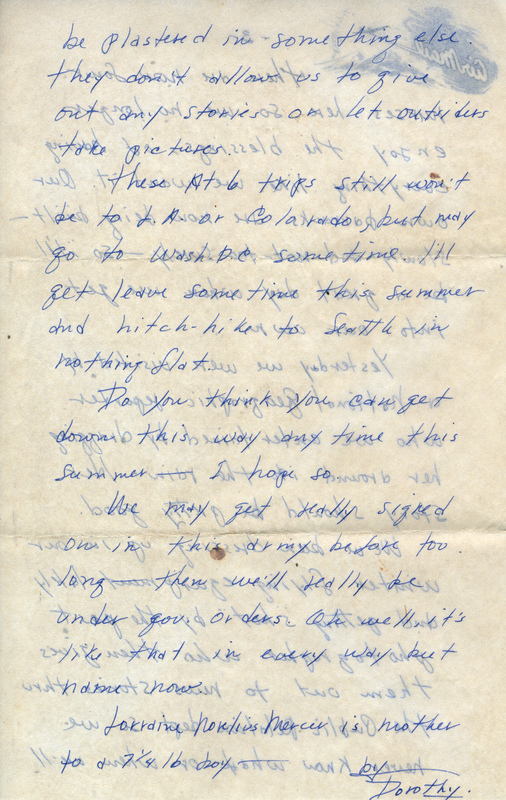 be plastered in something else.
they dont allow us to give
out any stories or let outsiders
take pictures.
These At6 trips still won't
be to L A or Colarado but may
go to Wash. D.C sometime. I'll
get leave sometime this summer
and hitch-hike to Seattle in
nothing flat.
Do you think you can get
down this way any time this
summer — I hope so.
We may get really signed
on in this army before too
long — then we'll really be
under gov. orders. Oh well it's
like that in every way but
name now.
Lorraine Mercer is mother
to a 7 1/4 lb boy —
by
Dorothy.